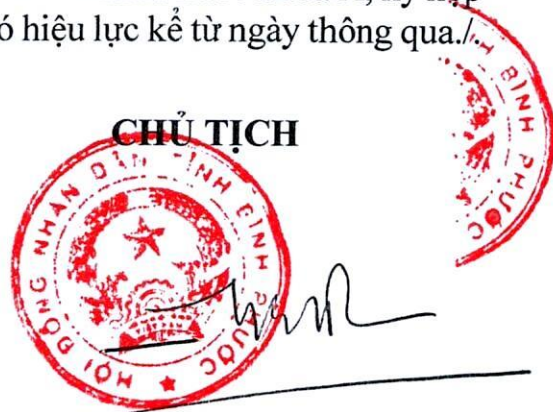 ó hiệu lực kể từ ngày thông qua./.
CHỦ TỊCH
HỘI ĐỒNG NHÂN DÂN TỈNH BÌNH PHƯỚC
H BÌNH PHƯỚC